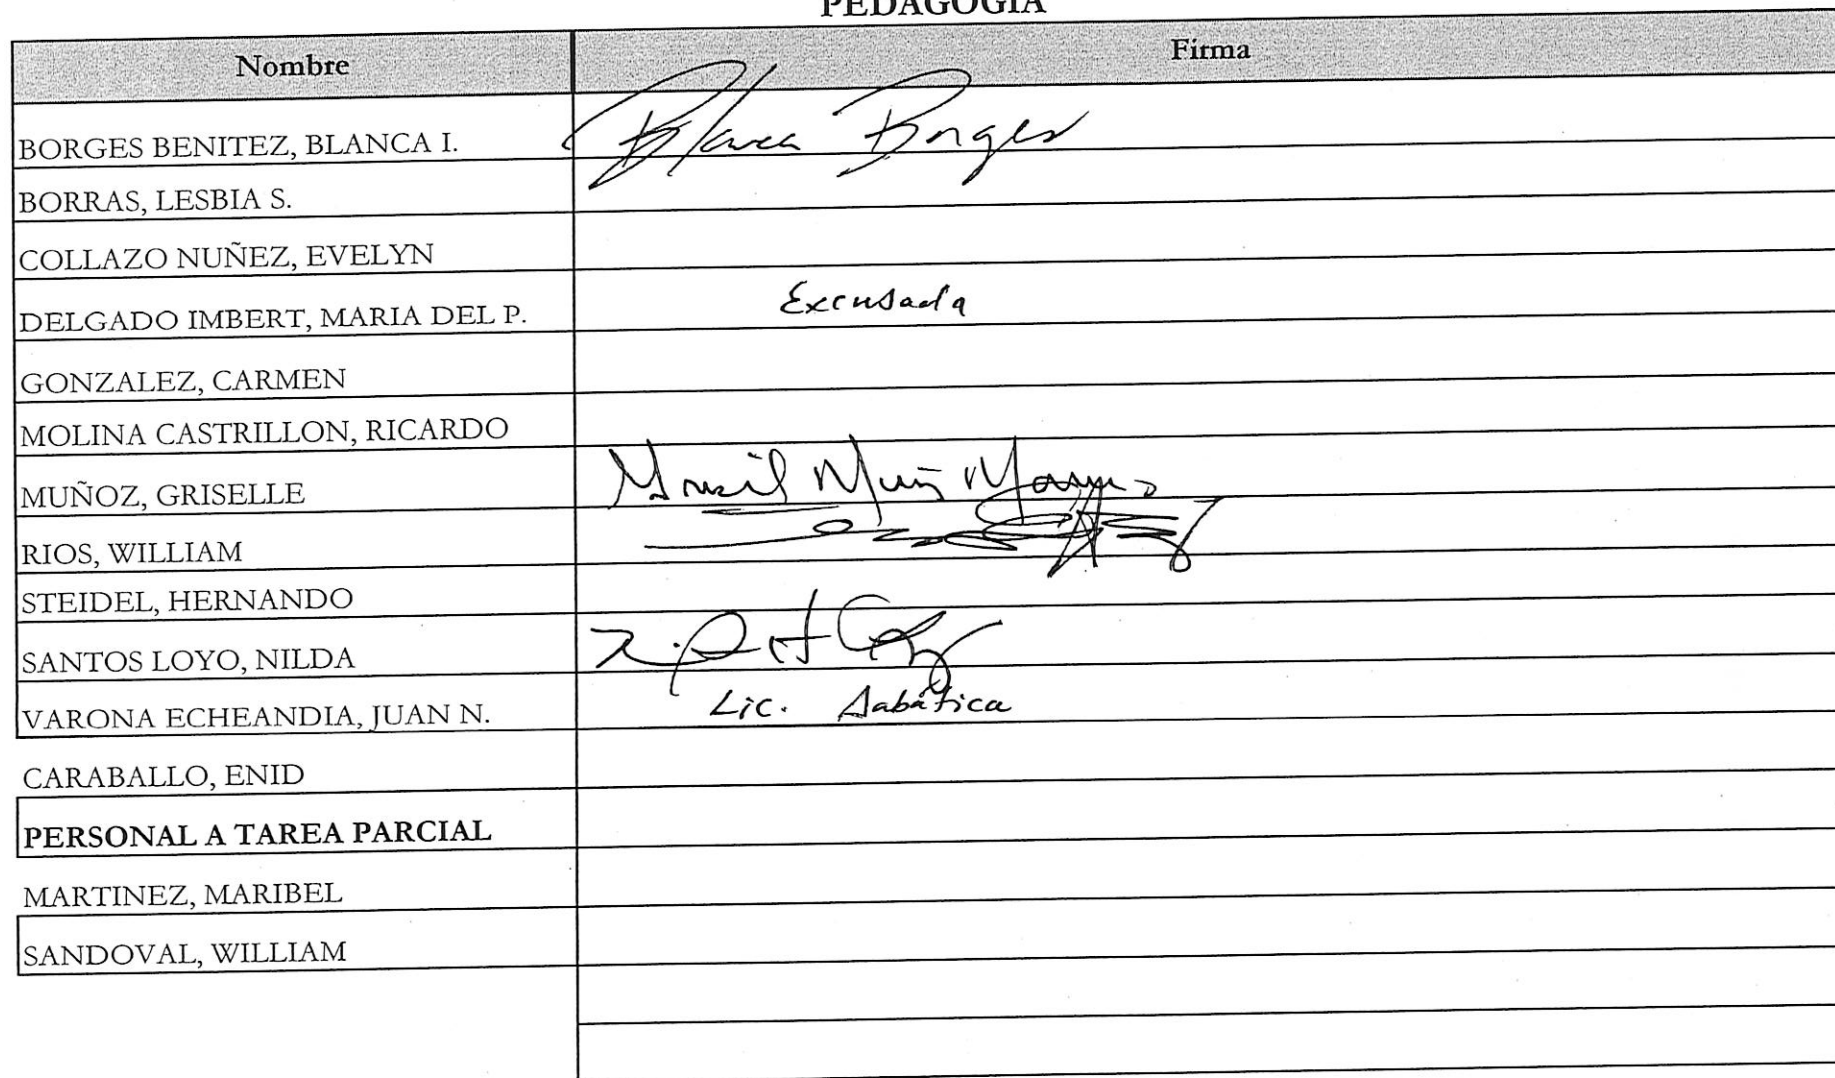 PEDAGOGIA
Nombre Firma
BORGES BENITEZ, BLANCA I. Blanca Borges
BORRAS, LESBIA S.
COLLAZO NUÑEZ, EVELYN
DELGADO IMBERT, MARIA DEL P. Excusada
GONZALEZ, CARMEN
MOLINA CASTRILLON, RICARDO
MUÑOZ, GRISELLE
RIOS, WILLIAM
STEIDEL, HERNANDO
SANTOS LOYO, NILDA
VARONA ECHEANDIA, JUAN N. Lic. Sabática
CARABALLO, ENID
PERSONAL A TAREA PARCIAL
MARTINEZ, MARIBEL
SANDOVAL, WILLIAM